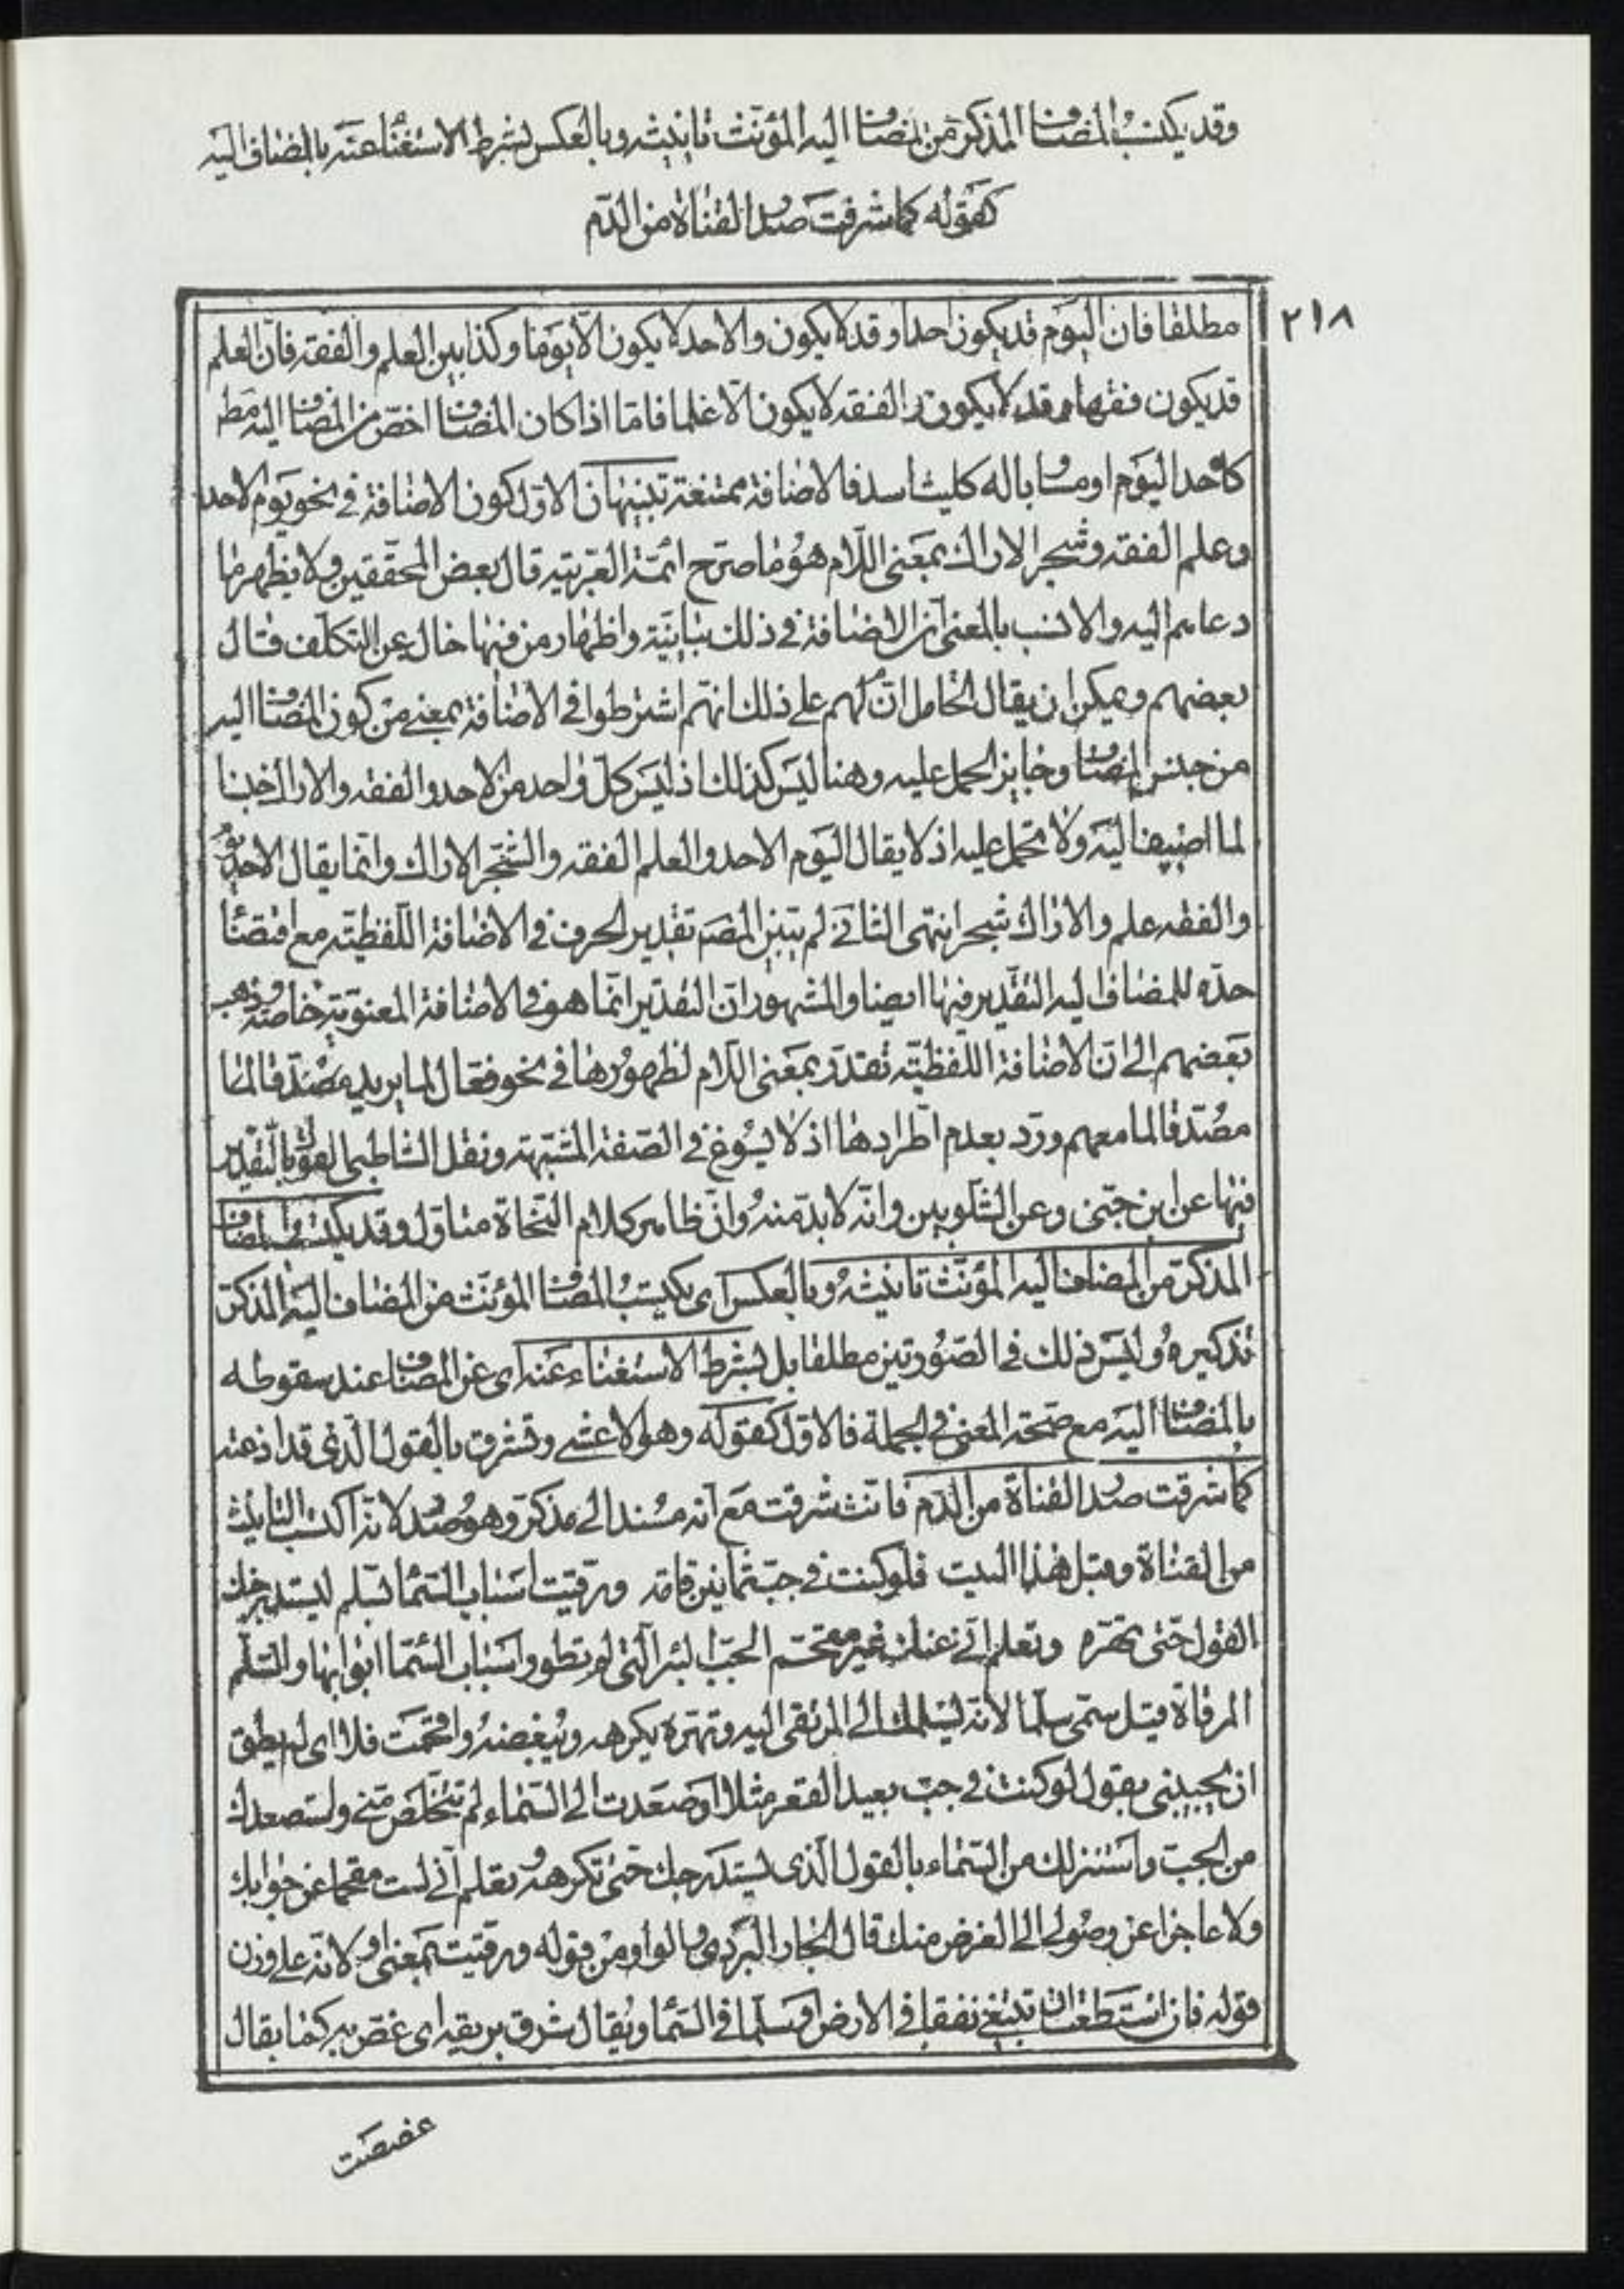 وقد يكتسب المضاف المذكر من المضاف اليه المؤنث تانيثه وبالعكس بشرط الاستغناء عنه بالمضاف اليه
كقوله كما شرقت صدر القناة من الدم
٢١٨
مطلقا فان اليوم قد يكون احدا وقد لا يكون والاحد لا يكون الا يوما وكذا بين العلم والفقه فان العلم
قد يكون فقها وقد لا يكون والفقه لا يكون الا علما فاما اذا كان المضاف اخص من المضاف اليه مط
كاحد اليوم او مساويا له كليث اسد فالاضافة ممتنعة تنبيهان الاول كون الاضافة في نحو يوم الاحد
وعلم الفقه وشجر الاراك بمعنى اللام هو ما صرح ائمة العربية قال بعض المحققين ولا يظهر ما
دعاهم اليه والانسب بالمعنى ان الاضافة في ذلك بيانية واظهار من فيها خال عن التكلف قال
بعضهم ويمكن ان يقال الحامل لهم على ذلك انهم اشترطوا في الاضافة بمعنى من كون المضاف اليه
من جنس المضاف وجايز الحمل عليه وهنا ليس كذلك اذ ليس كل واحد من الاحد والفقه والاراك جنسا
لما اضيف اليه ولا يحمل عليه اذ لا يقال اليوم الاحد والعلم الفقه والشجر الاراك وانما يقال الاحد يوم
والفقه علم والاراك شجر انتهى الثاني لم يبين المصـ تقدير الحرف في الاضافة اللفظية مع اقتضاء
حده للمضاف اليه التقدير فيها ايضا والمشهور ان التقدير انما هو في الاضافة المعنوية خاصة وذهب
بعضهم الى ان الاضافة اللفظية تقدر بمعنى اللام لظهورها في نحو فعال لما يريد مصدقا لما
مصدقا لما معهم ورد بعدم اطرادها اذ لا يسوغ في الصفة المشبهة ونقل الشاطبي القول بالتقدير
فيها عن ابن جني وعن الشلوبين وانه لا بد منه وان ظاهر كلام النحاة متاول وقد يكتسب المضاف
المذكر من المضاف اليه المؤنث تانيثه وبالعكس اى يكتسب المضاف المؤنث من المضاف اليه المذكر
تذكيره وليس ذلك في الصورتين مطلقا بل بشرط الاستغناء عنه اى عن المضاف عند سقوطه
بالمضاف اليه مع صحة المعنى في الجملة فالاول كقوله وهو الاعشى وتشرق بالقول الذي قد اذعته
كما شرقت صدر القناة من الدم فانث شرقت مع انه مسند الى مذكر وهو صدر لانه اكتسب التانيث
من القناة وقبل هذا البيت فلو كنت في جب ثمانين قامة ورقيت اسباب السماء بسلم ليستدرجنك
القول حتى تهره وتعلم اني عنك غير مفحم الجب البئر التي لم تطو واسباب السماء ابوابها والسلم
المرقاة قيل سمى سلما لانه ليسلمك الى المرتقى اليه وتهره يكرهه ويبغضه وافحمت فلانا اى لم يطق
ان يجيبني يقول لو كنت في جب بعيد القعر مثلا او صعدت الى السماء لم تتخلص مني ولستصعدك
من الجب واستنزلك من السماء بالقول الذي ليستدرجك حتى تكرهه وتعلم اني لست مفحما عن جوابك
ولا عاجزا عن وصولى الى الغرض منك قال الجاربردى والواو من قوله ورقيت بمعنى او لانه على وزن
قوله فان استطعت ان تبتغي نفقا في الارض او سلما في السماء ويقال شرق بريقه اى غص به كما يقال
غصصت